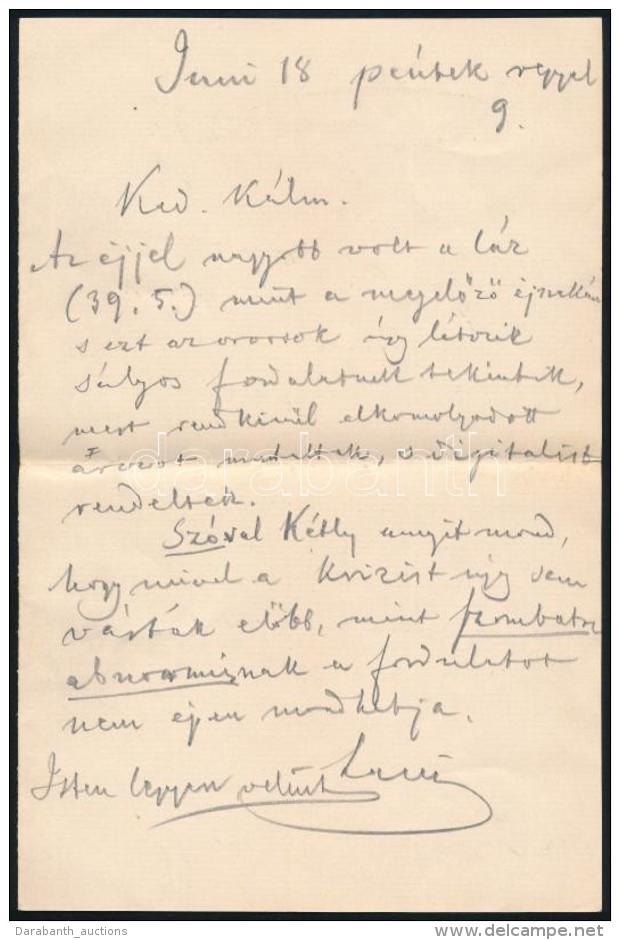 Juni 18 péntek reggel
9.
Ked. Kálm.
Az éjjel nagyobb volt a láz
(39.5.) mint a megelőző éjszakán
s ezt az orvosok úgy látszik
súlyos fordulatnak tekintik,
mert rendkivül elkomolyodott
arczot mutattak, s digitalist
rendeltek.
Szóval Kétly annyit mond,
hogy mivel a krizist úgy sem
várták előbb, mint szombatra
abnormisnak a fordulatot
nem épen mondhatja.
Isten legyen velünk
darabanth
Darabanth_auctions
www.delcampe.net